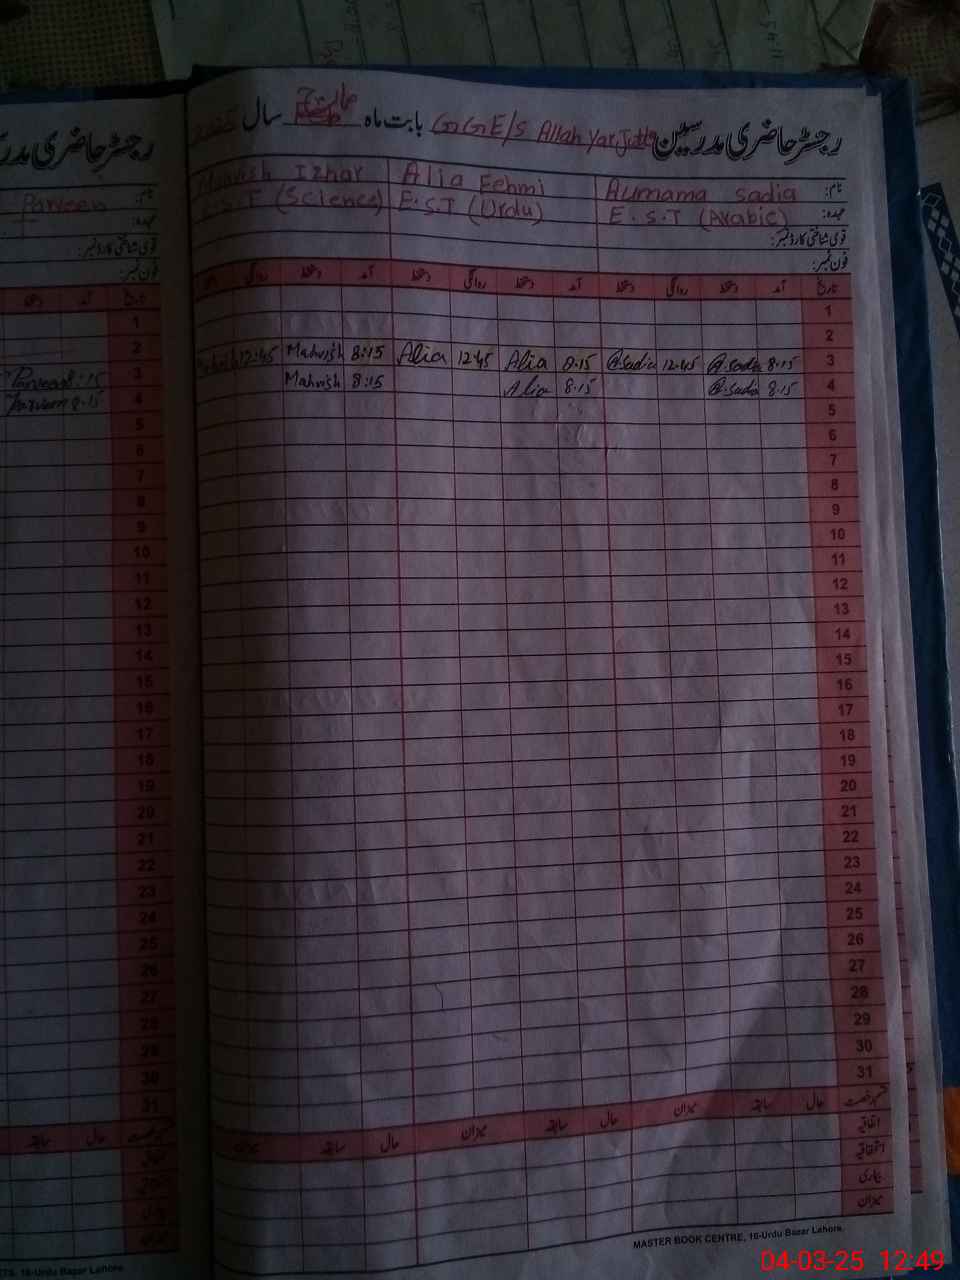 رجسٹر حاضری مدرسین GGE/S Allah Yar Jutta بابت ماہ مارچ سال 2025
نام: Aumama Sadia Alia Fehmi Mahvish Izhar
عہدہ: E.S.T (Arabic) E.S.T (Urdu) E.S.T (Science)
قومی شناختی کارڈ نمبر:
فون نمبر:
تاریخ آمد دستخط روانگی دستخط آمد دستخط روانگی دستخط آمد دستخط روانگی دستخط
1
2
3 8.15 A.Sadia 12.45 A.Sadia 8.15 Alia 12.45 Alia 8:15 Mahvish 12:45 Mahvish
4 8.15 A.Sadia 8.15 Alia 8:15 Mahvish
5
6
7
8
9
10
11
12
13
14
15
16
17
18
19
20
21
22
23
24
25
26
27
28
29
30
31
قسم رخصت حال سابقہ میزان حال سابقہ میزان حال سابقہ میزان
اتفاقیہ
استحقاقیہ
بیماری
میزان
MASTER BOOK CENTRE, 16-Urdu Bazar Lahore.
رجسٹر حاضری مدر
نام: Parveen
عہدہ:
قومی شناختی کارڈ نمبر:
فون نمبر:
تاریخ آمد دستخط
1
2
3 8:15 Parveen
4 8.15 Parveen
5
6
7
8
9
10
11
12
13
14
15
16
17
18
19
20
21
22
23
24
25
26
27
28
29
30
31
حال سابقہ
میزان
16-Urdu Bazar Lahore.
04-03-25 12:49